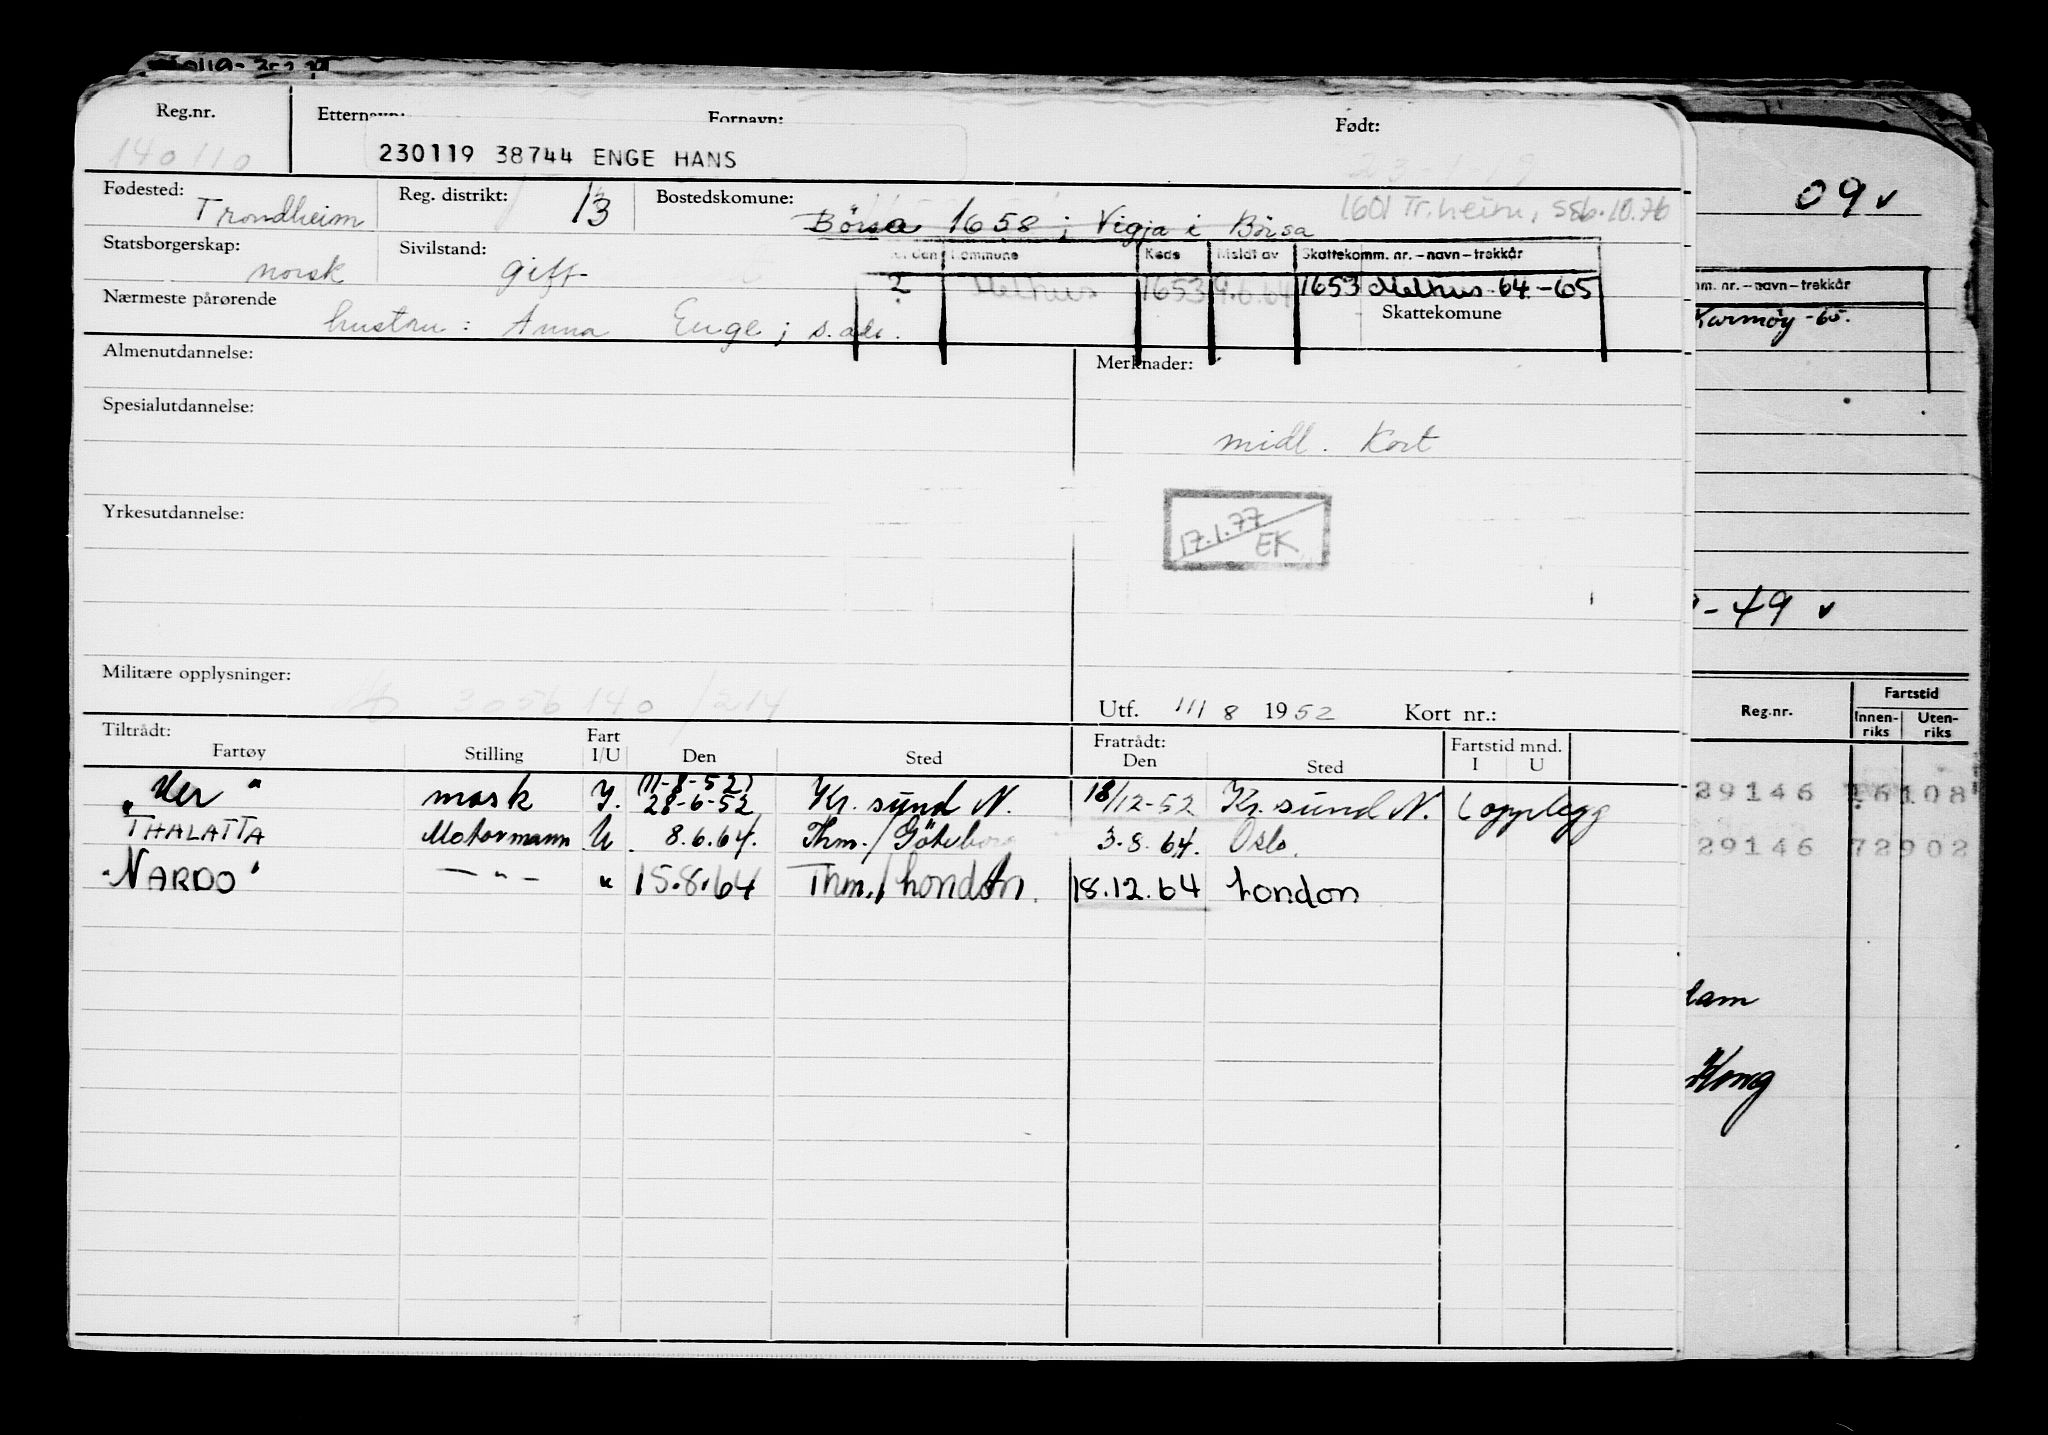 Reg.nr. Etternavn: Fornavn: Født:
140110 230119 38744 ENGE HANS 23-1-19
Fødested: Trondheim Reg. distrikt: 13 Bostedskomune: Börsa 1658 ; Vigja i Börsa 1601 Tr.heim, SSB.10.76
Statsborgerskap: norsk Sivilstand: gift
Kommune Kode Skattekomm. nr. – navn – trekkår
2 Melhus 1653 9.6.64 1653 Melhus-64-65
Nærmeste pårørende hustru: Anna Enge; s. adr. Skattekomune
Almenutdannelse: Merknader:
Spesialutdannelse:
midl. Kort
Yrkesutdannelse: 17.1.77 EK
Militære opplysninger: 3056 140/214
Utf. 11/8 1952 Kort nr.:
Tiltrådt: Fart Fratrådt: Fartstid mnd.
Fartøy Stilling I/U Den Sted Den Sted I U
(11-8-52)
"Ver" mask I. 28-6-52 Kr. sund N. 18/12-52 Kr. sund N. i opplegg
THALATTA Motormann U. 8.6.64. Thm./Göteborg 3.8.64. Oslo.
"NARDO" —"— " 15.8.64 Thm./London. 18.12.64 London
09 v
nm. nr. – navn – trekkår
Karmøy-65.
-49 v
Reg.nr. Fartstid
Innen-riks Uten-riks
29146
29146 72902
lam
Kong